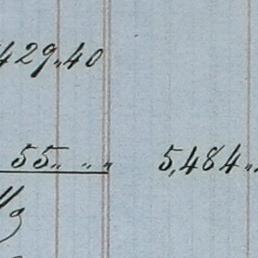 429„40
55„ „ „ 5,484„